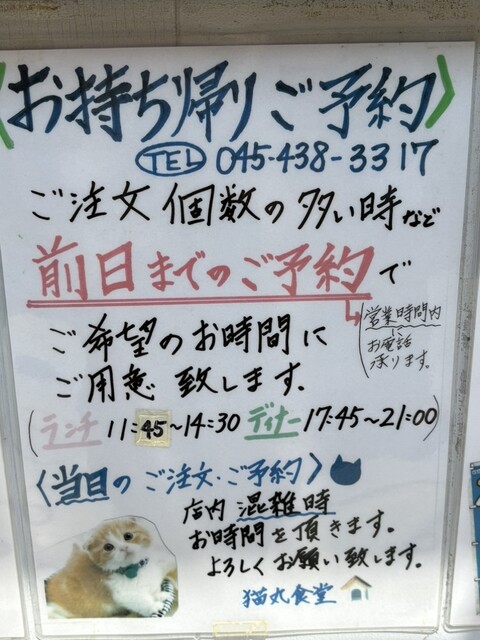 〈お持ち帰りご予約〉
TEL 045-438-3317
ご注文個数の多い時など
前日までのご予約で
営業時間内
に
お電話
承ります。
ご希望のお時間に
ご用意致します.
(ランチ 11:45~14:30 ディナー 17:45~21:00)
〈当日のご注文・ご予約〉
店内混雑時
お時間を頂きます。
よろしくお願い致します。
猫丸食堂